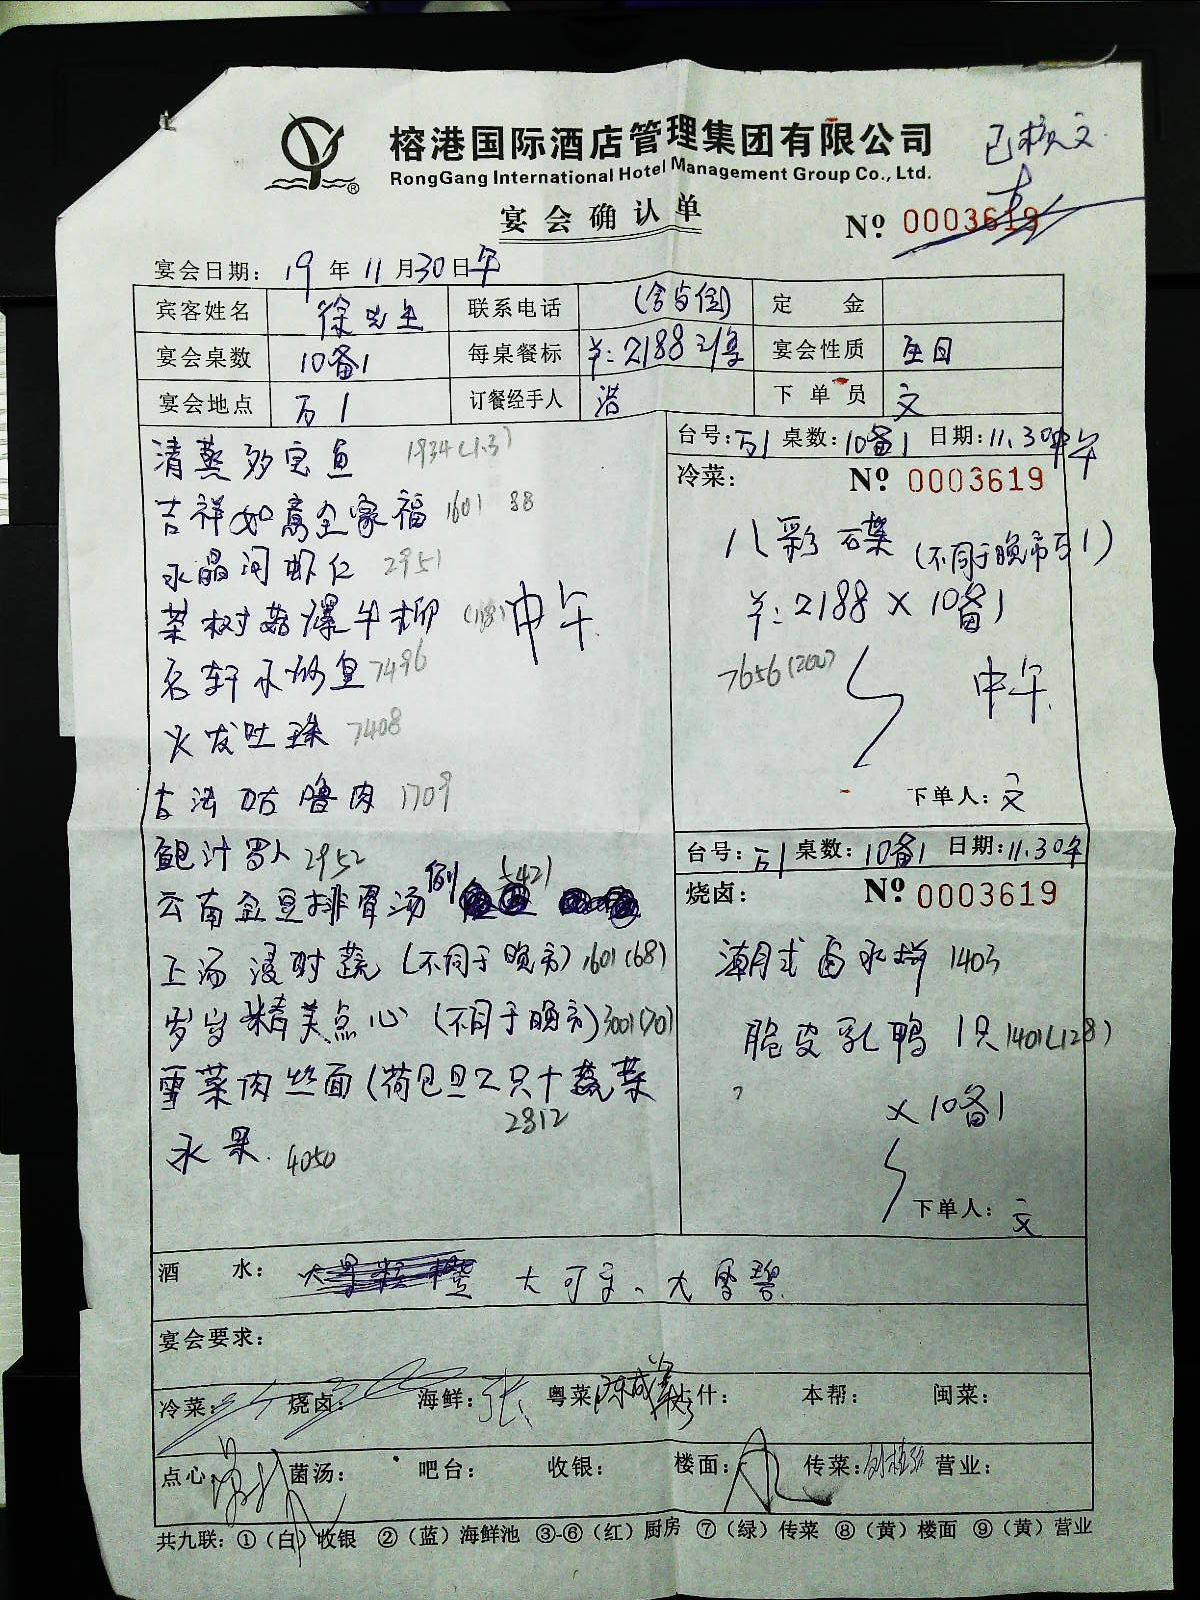 榕港国际酒店管理集团有限公司
RongGang International Hotel Management Group Co., Ltd.
已核 文
宴会确认单
№ 0003619
宴会日期: 19 年 11 月 30 日 午
宾客姓名 徐先生 联系电话 定 金
宴会桌数 10备1 每桌餐标 羊:2188 宴会性质 生日
宴会地点 万1 订餐经手人 浩 下单员 文
清蒸多宝鱼 1934(1.3)
吉祥如意全家福 1601 88
水晶河虾仁 2951
茶树菇爆牛柳 (188) 中午
名轩水煮鱼 7496
火龙吐珠 7408
古法咕噜肉 1709
鲍汁 2952
云南金豆排骨汤 例
上汤浸时蔬 (不同于晚市) 1601(68)
岁岁精美点心 (不同于晚市) 3001(70)
雪菜肉丝面 (荷包旦2只十蔬菜
2812
水果. 4050
台号: 万1 桌数: 10备1 日期: 11.30中午
冷菜: № 0003619
八彩碟 (不同于晚市万1)
羊:2188×10备1
7656(200) 中午
下单人: 文
台号: 万1 桌数: 10备1 日期: 11.30午
烧卤: № 0003619
潮式卤水拼 1403
脆皮乳鸭 1只 1401(128)
×10备1
下单人: 文
酒 水: 大可乐、大雪碧
宴会要求:
冷菜: 烧卤: 海鲜: 张 粤菜: 什: 本帮: 闽菜:
点心: 菌汤: 吧台: 收银: 楼面: 传菜: 营业:
共九联: ①(白)收银 ②(蓝)海鲜池 ③-⑥(红)厨房 ⑦(绿)传菜 ⑧(黄)楼面 ⑨(黄)营业